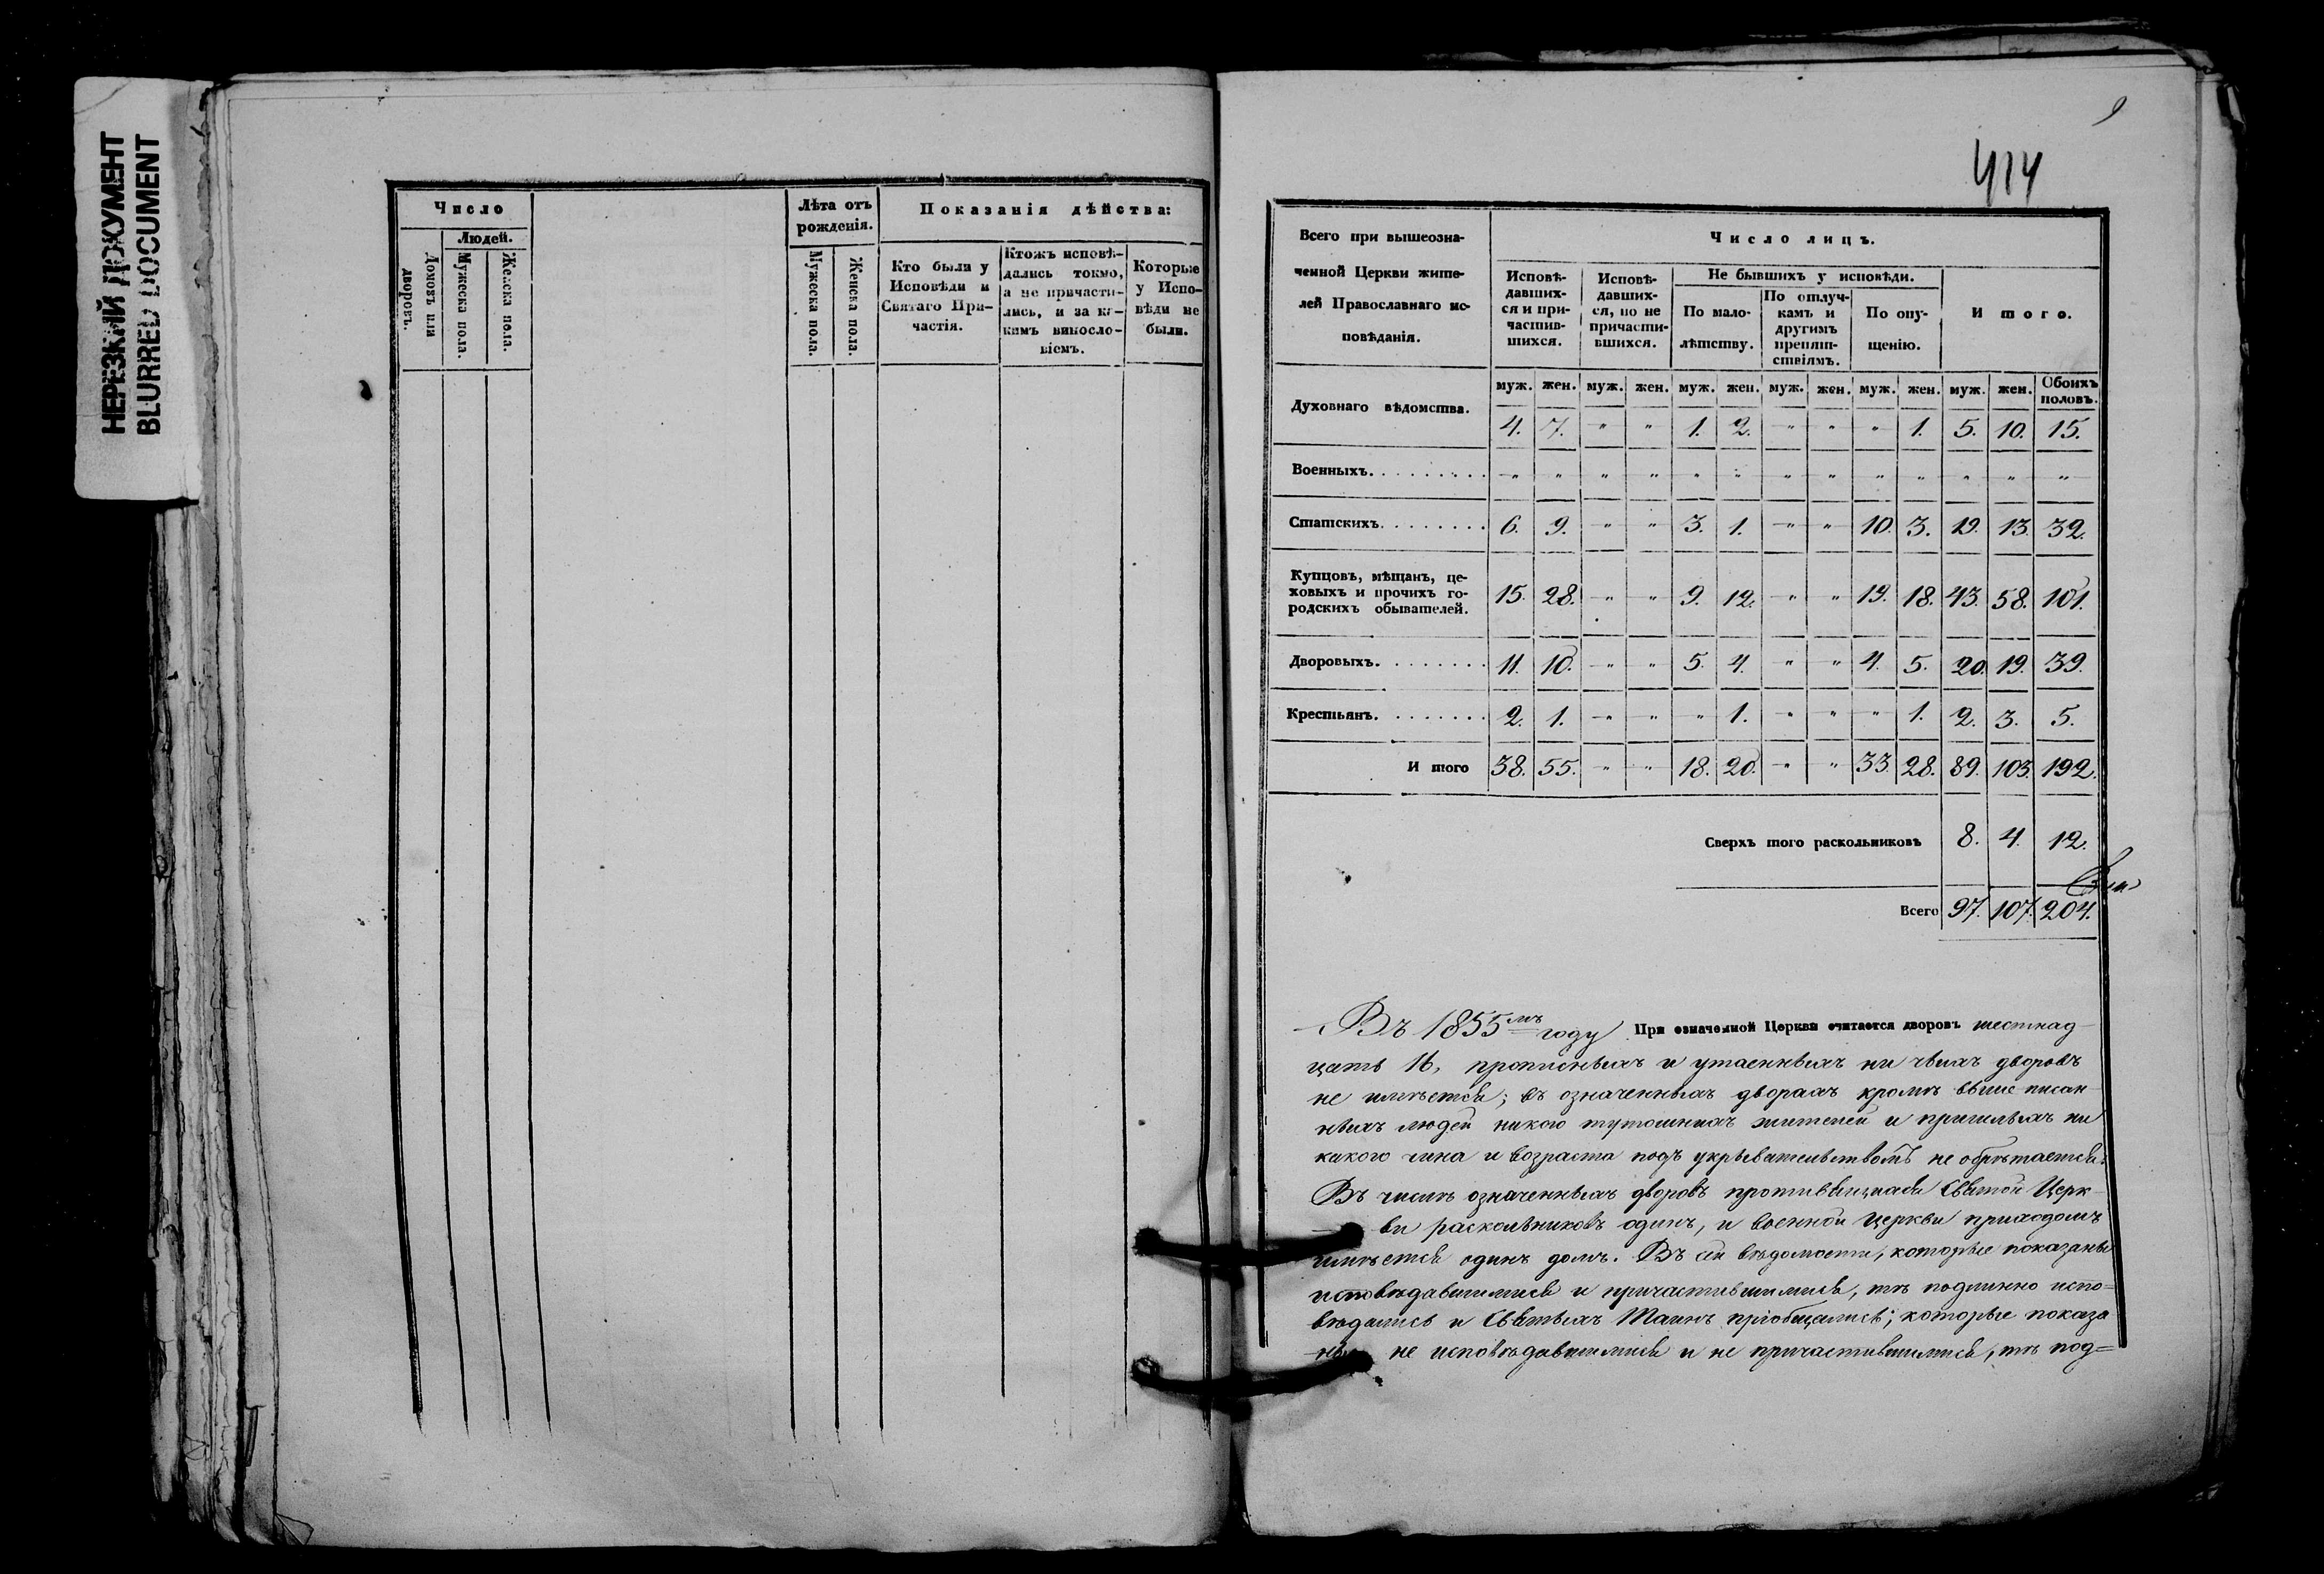 НЕРЕЗКИЙ ДОКУМЕНТ
BLURRED DOCUMENT
Число
Людей.
Домовъ или дворовъ.
Мужеска пола.
Женска пола.
Лѣта отъ
рожденія.
Мужеска пола.
Женска пола.
Показанія дѣйства:
Кто были у
Исповѣди и
Святаго При-
частія.
Ктожъ исповѣ-
дались токмо,
а не причасти-
лись, и за ка-
кимъ виносло-
віемъ.
Которые
у Испо-
вѣди не
были.
414
Всего при вышеозна-
ченной Церкви жите-
лей Православнаго ис-
повѣданія.
Число лицъ.
Исповѣ-
давших-
ся и при-
частив-
шихся.
Исповѣ-
давших-
ся, но не
причасти-
вшихся.
Не бывшихъ у исповѣди.
По мало-
лѣтству.
По отлуч-
камъ и
другимъ
препят-
ствіямъ.
По опу-
щенію.
И того.
муж. жен. муж. жен. муж. жен. муж. жен. муж. жен. муж. жен. Обоихъ половъ.
Духовнаго вѣдомства. 4. 7. " " 1. 2. " " " 1. 5. 10. 15.
Военныхъ. " " " " " " " " " " " " "
Статскихъ. 6. 9. " " 3. 1. " " 10. 3. 19. 13. 32.
Купцовъ, мѣщанъ, це-
ховыхъ и прочихъ го-
родскихъ обывателей. 15. 28. " " 9. 12. " " 19. 18. 43. 58. 101.
Дворовыхъ. 11. 10. " " 5. 4. " " 4. 5. 20. 19. 39.
Крестьянъ. 2. 1. " " " 1. " " " 1. 2. 3. 5.
И того 38. 55. " " 18. 20. " " 33. 28. 89. 103. 192.
Сверхъ того раскольниковъ 8. 4. 12.
Всего 97. 107. 204.
Въ 1855мъ году При означенной Церкви считается дворовъ шестнад-
цать 16, прописныхъ и утаенныхъ ни чьихъ дворовъ
не имѣется; въ означенныхъ дворахъ кромѣ выше писан-
ныхъ людей никого тутошнихъ жителей и пришлыхъ ни
какого чина и возраста подъ укрывательствомъ не обрѣтается.
Въ числѣ означенныхъ дворовъ противящихся Святой Церк-
ви раскольниковъ одинъ, и военной церкви приходомъ
имѣется одинъ домъ. Въ сей вѣдомости, которые показаны
исповѣдавшимися и причастившимися, тѣ подлинно испо=
вѣдались и Святыхъ Таинъ пріобщались; которые показа
ны не исповѣдавшимися и не причастившимися, тѣ под=